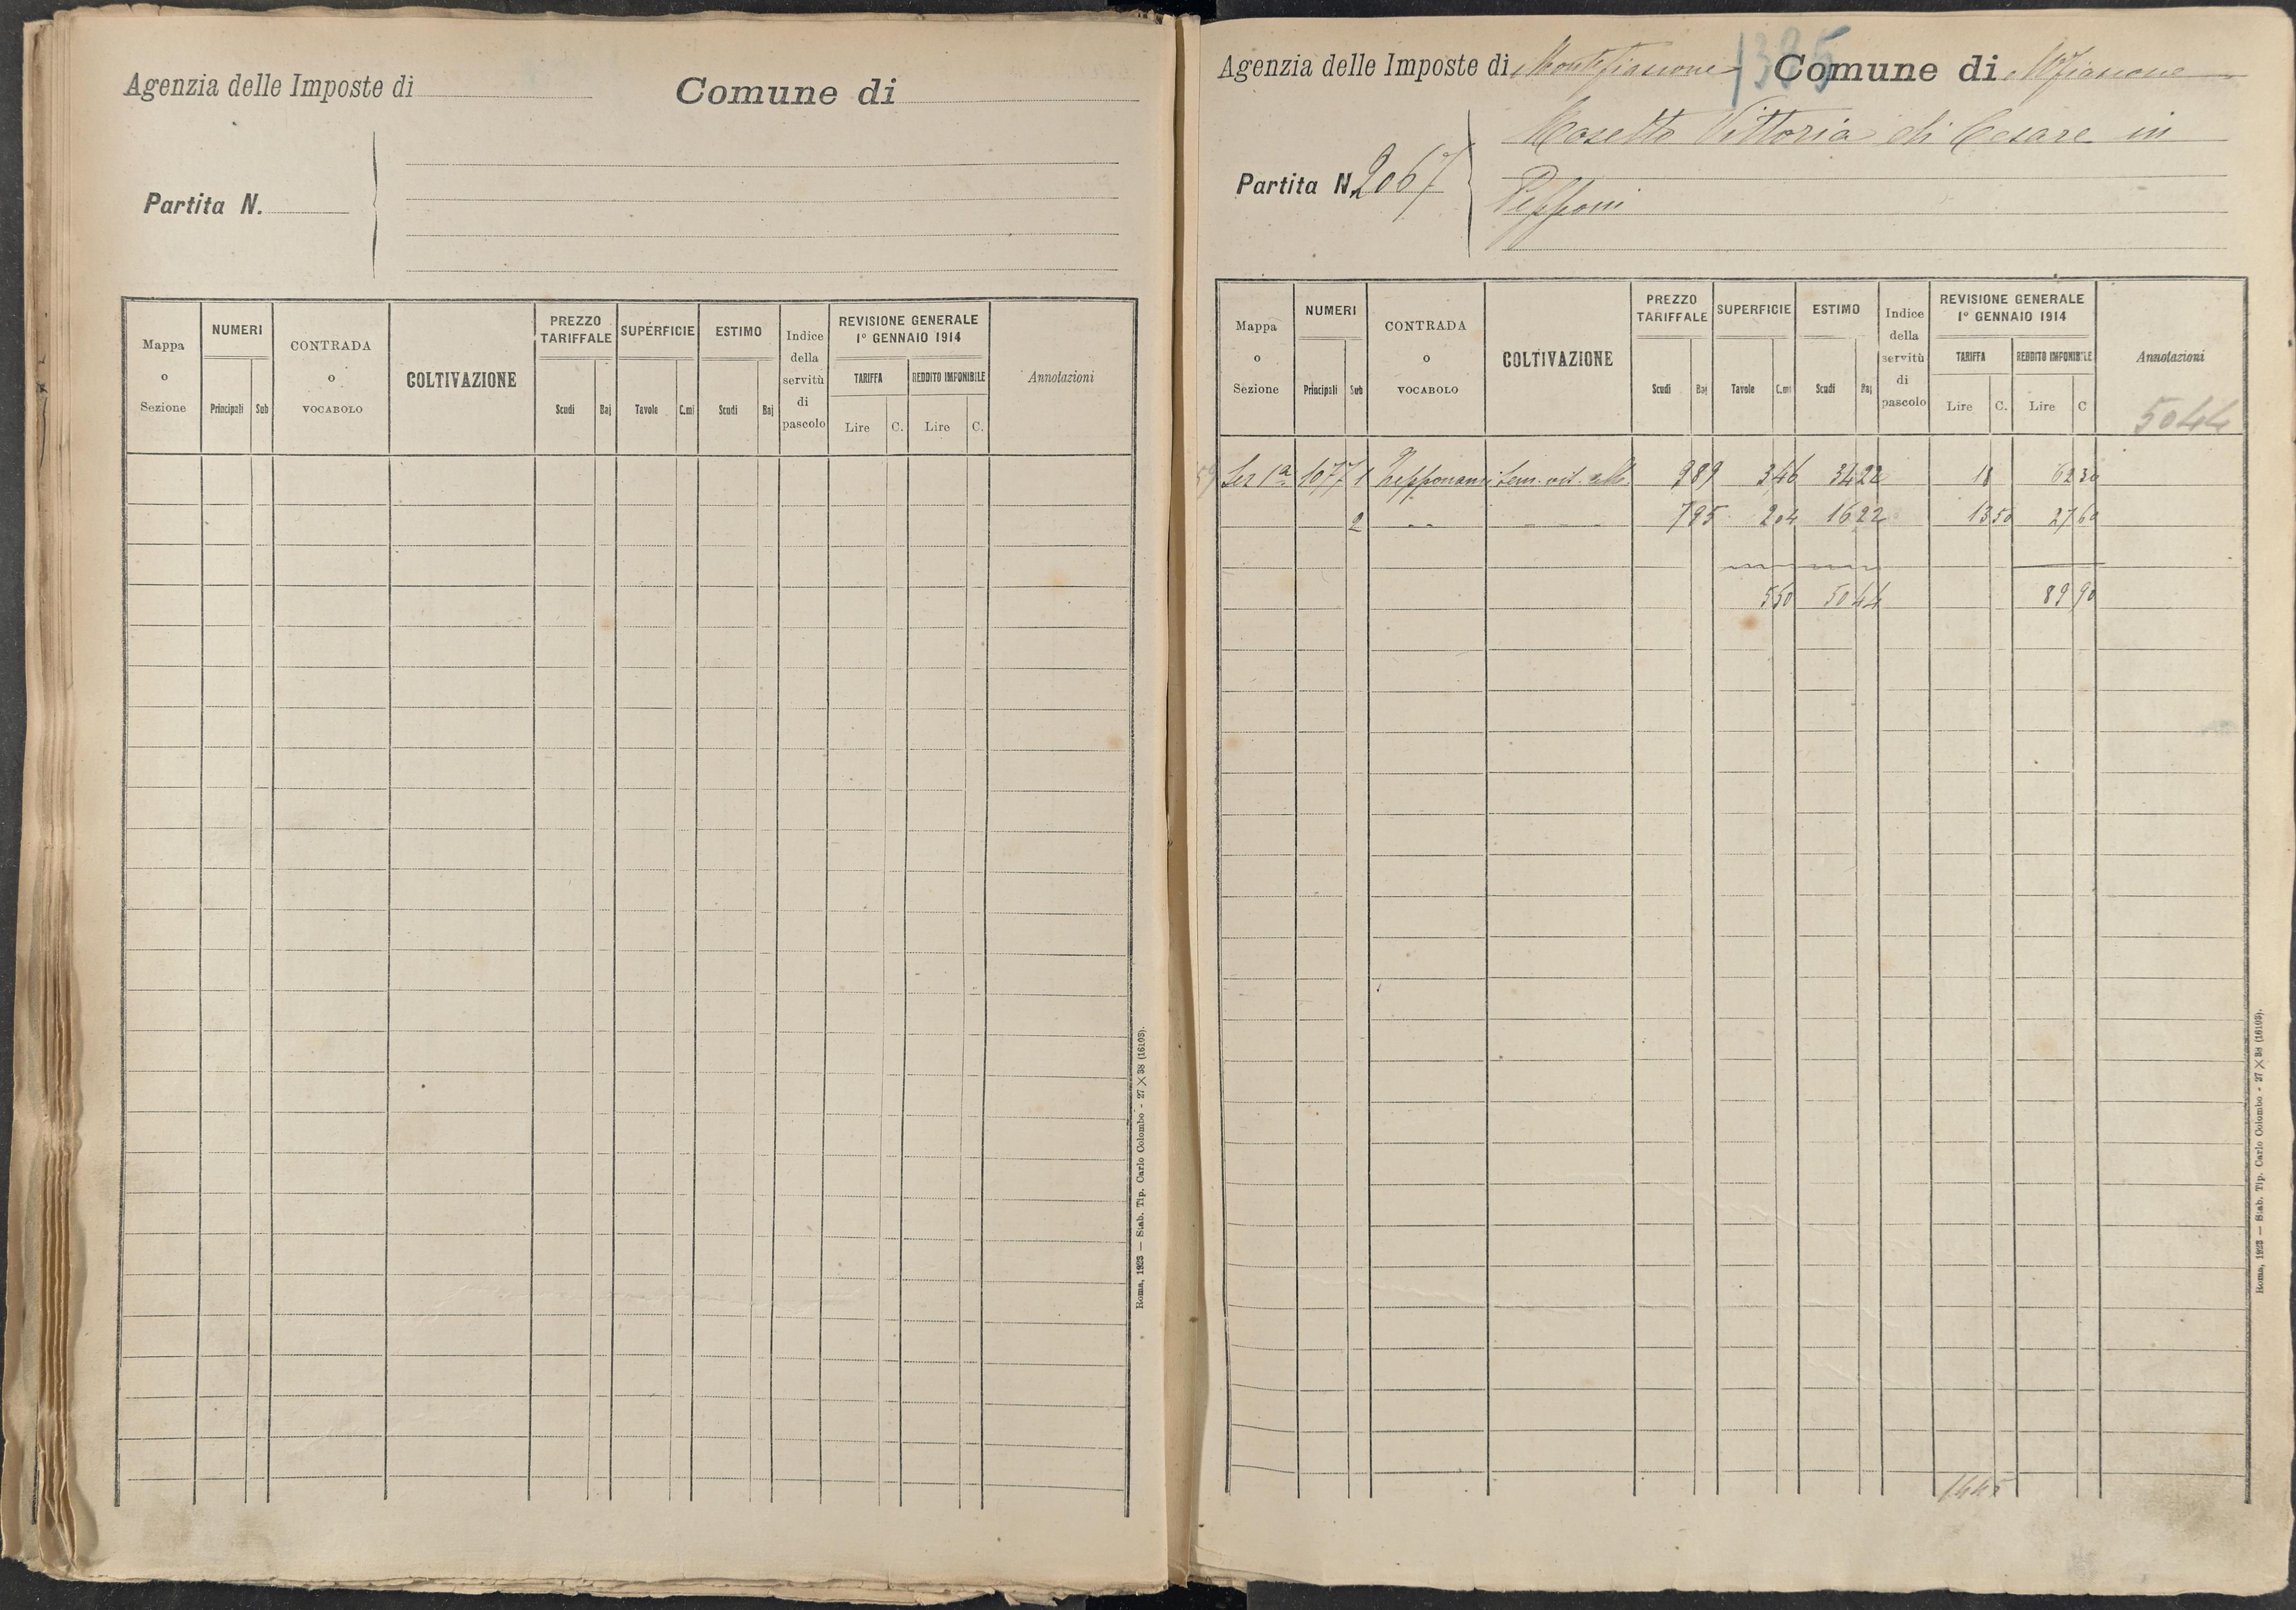 Agenzia delle Imposte di
Comune di
Partita N.
Mappa o Sezione
NUMERI
Principali Sub
CONTRADA o VOCABOLO
COLTIVAZIONE
PREZZO TARIFFALE
Scudi Baj
SUPERFICIE
Tavole C.mi
ESTIMO
Scudi Baj
Indice della servitù di pascolo
REVISIONE GENERALE
1° GENNAIO 1914
TARIFFA REDDITO IMPONIBILE
Lire C. Lire C.
Annotazioni
Roma, 1923 — Stab. Tip. Carlo Colombo - 27 × 38 (16103).
1385
Agenzia delle Imposte di Montefiascone Comune di Mfiascone
Partita N. 2067
Vittoria di Cesare in
Pepponi
Mappa o Sezione
NUMERI
Principali Sub
CONTRADA o VOCABOLO
COLTIVAZIONE
PREZZO TARIFFALE
Scudi Baj
SUPERFICIE
Tavole C.mi
ESTIMO
Scudi Baj
Indice della servitù di pascolo
REVISIONE GENERALE
1° GENNAIO 1914
TARIFFA REDDITO IMPONIBILE
Lire C. Lire C
Annotazioni
5044
Sez 1a 1077 1 Sem. vit. 989 346 3422 18 62 30
2 795 204 1622 13 50 27 60
550 5044 89 90
1445
Roma, 1923 — Stab. Tip. Carlo Colombo - 27 × 38 (16103).